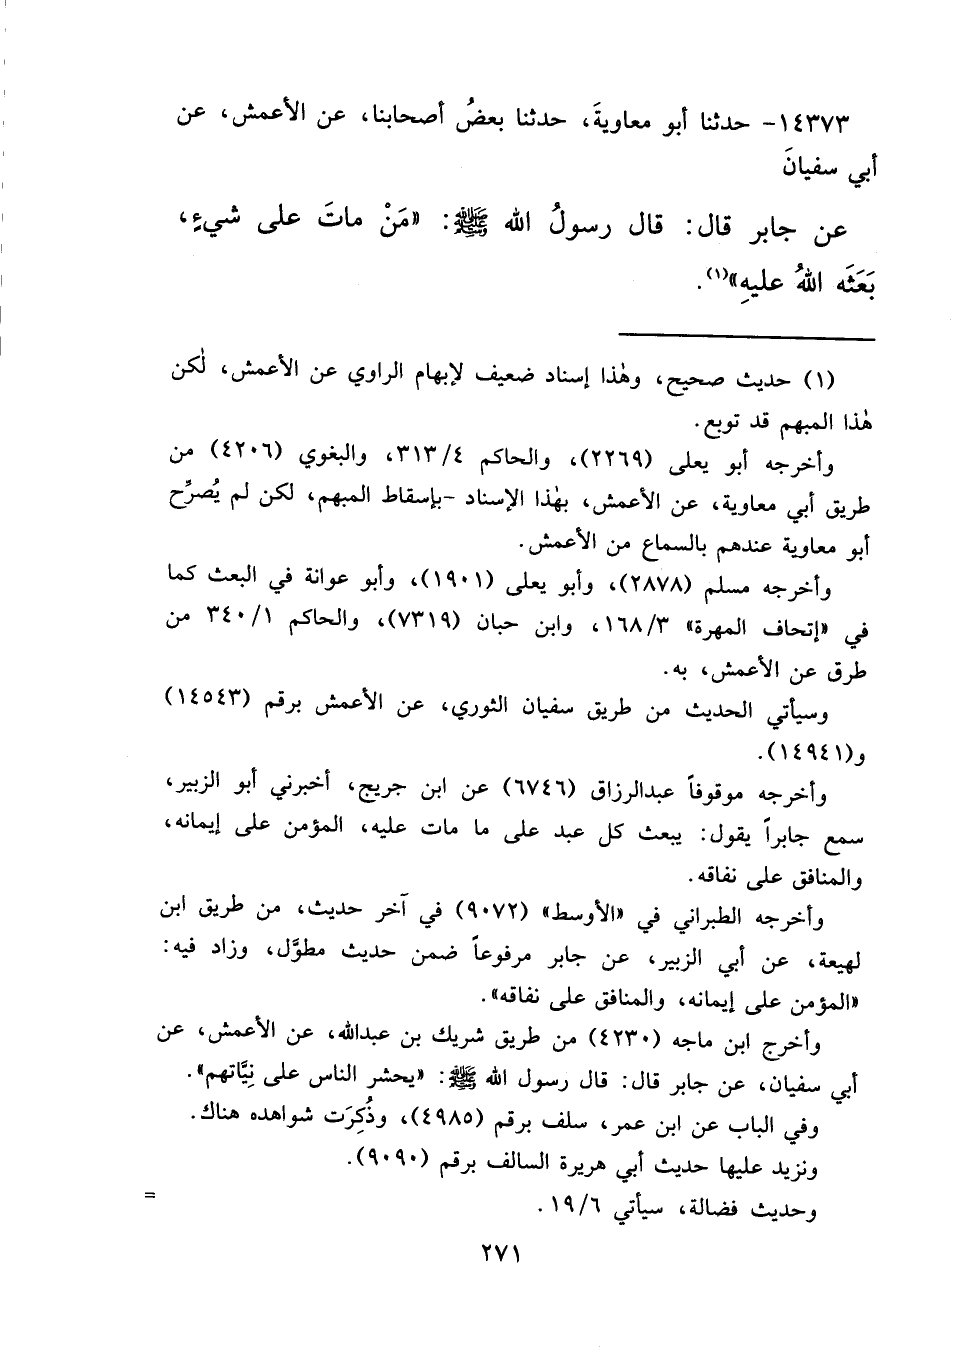 ١٤٣٧٣- حدثنا أبو معاويةَ، حدثنا بعضُ أصحابنا، عن الأعمش، عن
أبي سفيانَ
عن جابر قال: قال رسولُ الله ﷺ: «مَنْ ماتَ على شيءٍ،
بَعَثَه اللهُ عليهِ»(١).
(١) حديث صحيح، وهٰذا إسناد ضعيف لإبهام الراوي عن الأعمش، لٰكن
هٰذا المبهم قد توبع.
وأخرجه أبو يعلى (٢٢٦٩)، والحاكم ٣١٣/٤، والبغوي (٤٢٠٦) من
طريق أبي معاوية، عن الأعمش، بهٰذا الإسناد -بإسقاط المبهم، لكن لم يُصرِّح
أبو معاوية عندهم بالسماع من الأعمش.
وأخرجه مسلم (٢٨٧٨)، وأبو يعلى (١٩٠١)، وأبو عوانة في البعث كما
في «إتحاف المهرة» ١٦٨/٣، وابن حبان (٧٣١٩)، والحاكم ٣٤٠/١ من
طرق عن الأعمش، به.
وسيأتي الحديث من طريق سفيان الثوري، عن الأعمش برقم (١٤٥٤٣)
و(١٤٩٤١).
وأخرجه موقوفاً عبدالرزاق (٦٧٤٦) عن ابن جريج، أخبرني أبو الزبير،
سمع جابراً يقول: يبعث كل عبد على ما مات عليه، المؤمن على إيمانه،
والمنافق على نفاقه.
وأخرجه الطبراني في «الأوسط» (٩٠٧٢) في آخر حديث، من طريق ابن
لهيعة، عن أبي الزبير، عن جابر مرفوعاً ضمن حديث مطوَّل، وزاد فيه:
«المؤمن على إيمانه، والمنافق على نفاقه».
وأخرج ابن ماجه (٤٢٣٠) من طريق شريك بن عبدالله، عن الأعمش، عن
أبي سفيان، عن جابر قال: قال رسول الله ﷺ: «يحشر الناس على نِيَّاتهم».
وفي الباب عن ابن عمر، سلف برقم (٤٩٨٥)، وذُكِرَت شواهده هناك.
ونزيد عليها حديث أبي هريرة السالف برقم (٩٠٩٠).
وحديث فضالة، سيأتي ١٩/٦.
=
٢٧١